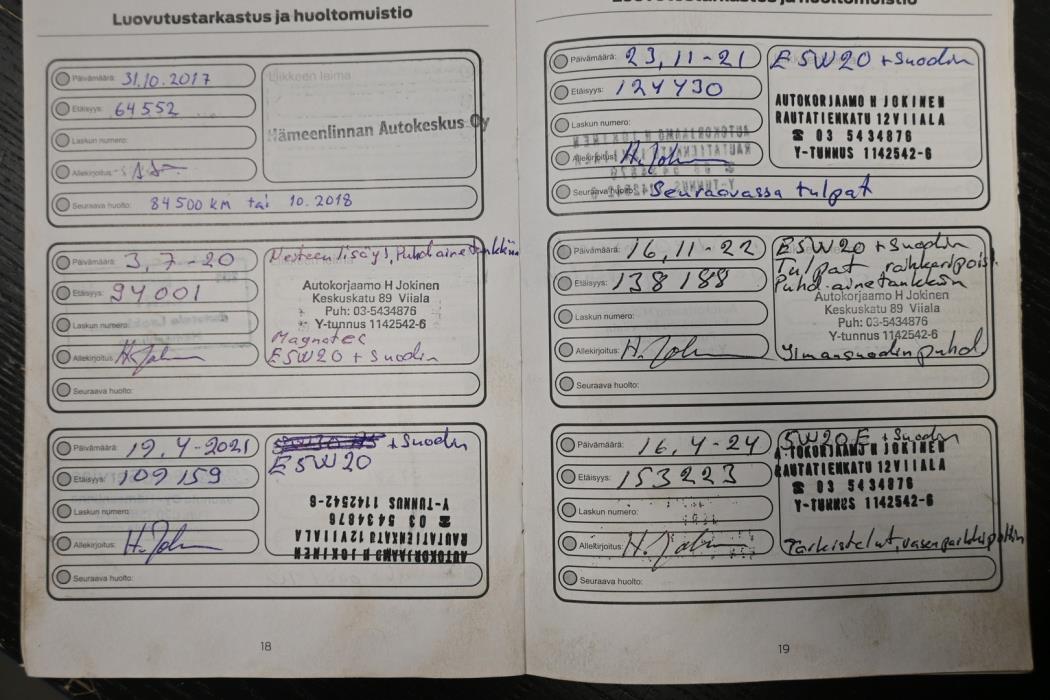 Luovutustarkastus ja huoltomuistio
Päivämäärä: 31.10.2017
Liikkeen leima
Etäisyys: 64552
Hämeenlinnan Autokeskus Oy
Laskun numero:
Allekirjoitus:
Seuraava huolto: 84500 km tai 10.2018
Päivämäärä: 3,7-20
Nesteen lisäys, Puhd.aine tankkiin
Etäisyys: 94001
Autokorjaamo H Jokinen
Keskuskatu 89 Viiala
Puh: 03-5434876
Y-tunnus 1142542-6
Laskun numero:
Magnatec
Allekirjoitus:
E5W20 + Suodin
Seuraava huolto:
Päivämäärä: 19,4-2021
+ Suodin
Etäisyys: 109159
E5W20
Laskun numero:
Y-TUNNUS 1142542-6
☎ 03 5434876
RAUTATIENKATU 12 VIIALA
AUTOKORJAAMO H JOKINEN
Allekirjoitus:
Seuraava huolto:
18
Luovutustarkastus ja huoltomuistio
Päivämäärä: 23,11-21
E5W20 + Suodin
Etäisyys: 124730
AUTOKORJAAMO H JOKINEN
RAUTATIENKATU 12 VIIALA
☎ 03 5434876
Y-TUNNUS 1142542-6
Laskun numero:
Allekirjoitus:
Seuraava huolto: Seuraavassa tulpat
Päivämäärä: 16,11-22
E5W20 + Suodin
Tulpat
Etäisyys: 138188
Puhd.ainetankkiin
Autokorjaamo H Jokinen
Keskuskatu 89 Viiala
Puh: 03-5434876
Y-tunnus 1142542-6
Laskun numero:
Allekirjoitus:
Ilmansuodin puhd.
Seuraava huolto:
Päivämäärä: 16,4-24
5W20E + Suodin
Etäisyys: 153223
AUTOKORJAAMO H JOKINEN
RAUTATIENKATU 12 VIIALA
☎ 03 5434876
Y-TUNNUS 1142542-6
Laskun numero:
Allekirjoitus:
Tarkistelut, vasen parkkipolttin
Seuraava huolto:
19